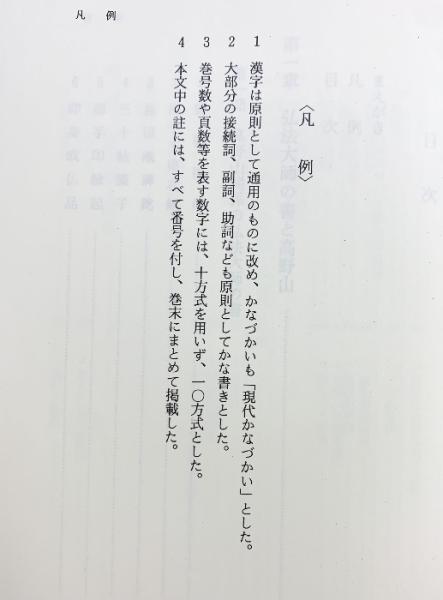 凡例
〈凡例〉
1 漢字は原則として通用のものに改め、かなづかいも「現代かなづかい」とした。
2 大部分の接続詞、副詞、助詞なども原則としてかな書きとした。
3 巻号数や頁数等を表す数字には、十方式を用いず、一〇方式とした。
4 本文中の註には、すべて番号を付し、巻末にまとめて掲載した。